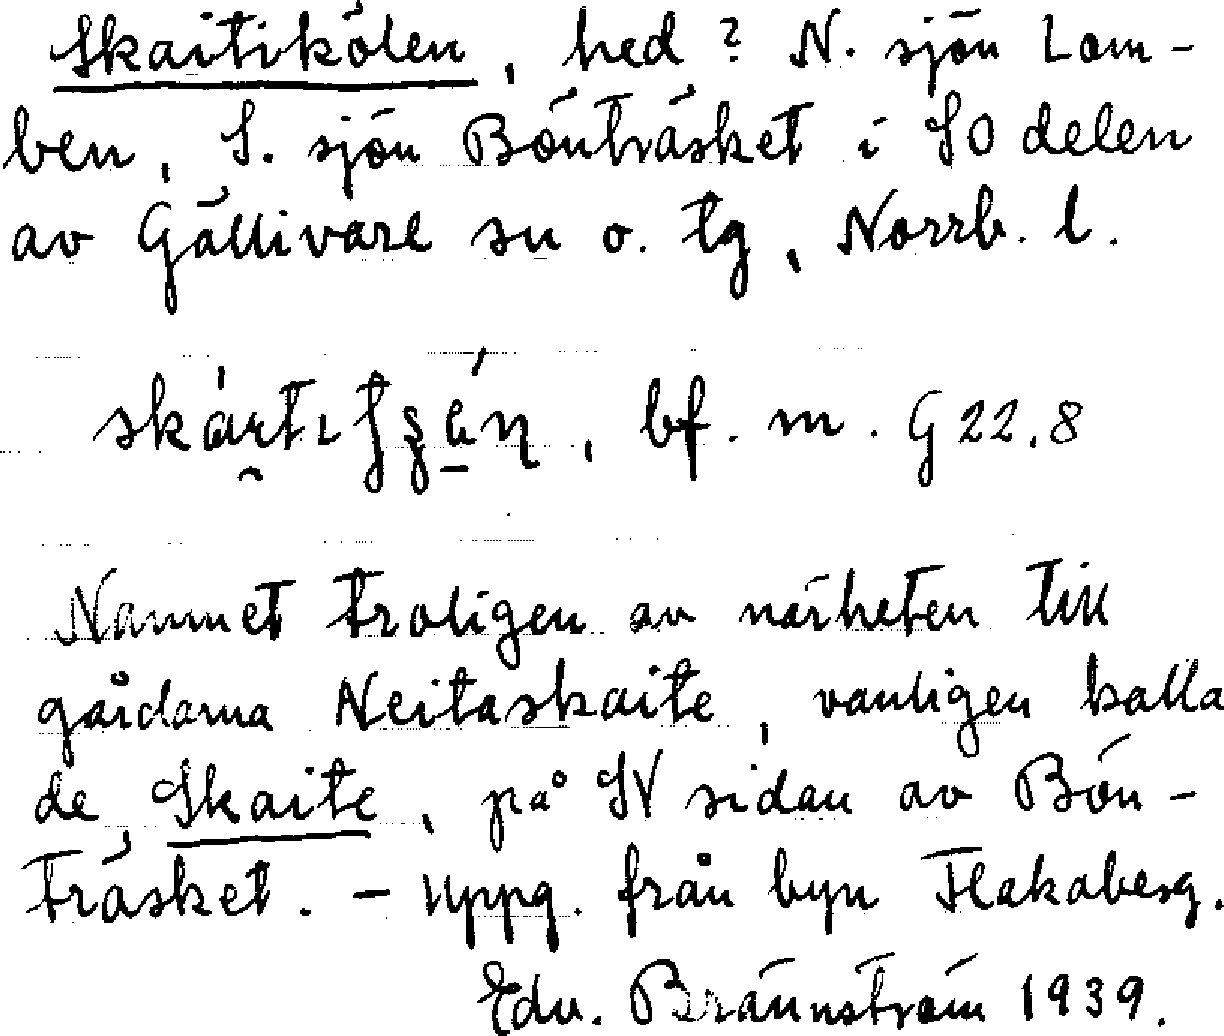 Skaitikölen, hed? N. sjön Lom-
ben, S. sjön Bönträsket i SO delen
av Gällivare sn o. tg, Norrb. l.
bf. m. G 22.8
Namnet troligen av närheten till
gårdarna Neitaskaite, vanligen kalla
de, Skaite, på SV sidan av Bön-
träsket. – Uppg. från byn Flakaberg.
Edv. Brännström 1939.